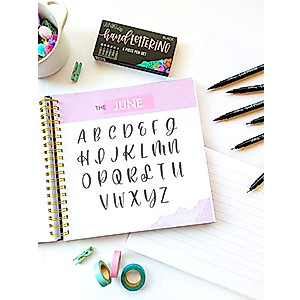 hand LETTERING
BLACK
6 PIECE PEN SET
THE JUNE
A B C D E F G
H I J K L M N
O P Q R S T U
V W X Y Z